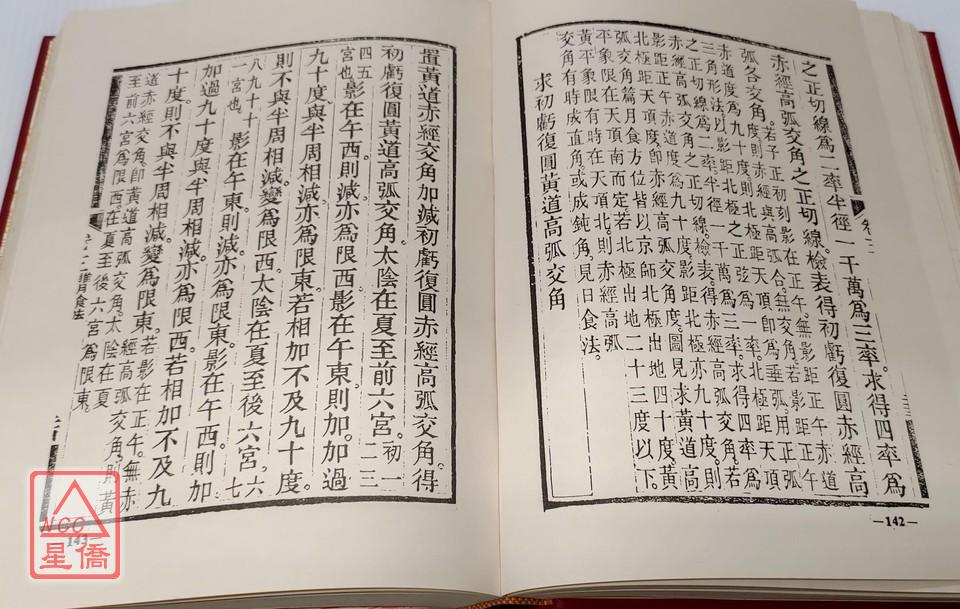 之正切線為二率半徑一千萬為三率。求得四率為
赤經高弧交角之正切線。檢表得初虧復圓赤經高
弧各交角。若子正初刻影在正午。無影距正午赤道
度則赤經與高弧合。無交角。若影距正午
赤道度為九十度。則北極距天頂。即為垂弧。用正弧
三角形法。以影距北極之正弦為一率。北極距天頂
之正切線為二率。半徑一千萬為三率。求得四率為
赤經高弧交角之正切線。檢表。得赤經高弧交角。若
影距正午赤道度為九十度。影距北極亦九十度。則
北極距天頂度。即赤經高弧交角度。圖見求黃道高
弧交角篇。月食方位皆以京師北極出地四十度。黃
平象限在天頂南而定。若北極出地二十三度以下。
黃平象限有時在天頂北。則赤經高弧
交角有時成直角。或成鈍角。見日食法。
求初虧復圓黃道高弧交角
卷二
—142—
置黃道赤經交角。加減初虧復圓赤經高弧交角。得
初虧復圓黃道高弧交角。太陰在夏至前六宮。初一二三
四五宮也。影在午西則減。亦為限西。影在午東則加。加過
九十度。與半周相減。亦為限東。若相加不及九十度。
則不與半周相減。變為限西。太陰在夏至後六宮。六七
八九十十一宮也。影在午東則減。亦為限東。影在午西。則加
加過九十度。與半周相減。亦為限西。若相加不及九
十度。則不與半周相減。變為限東。若影在正午。無赤
經高弧交角。則黃
道赤經交角即黃道高弧交角。太陰在夏
至前六宮為限西。在夏至後六宮為限東。
月食法
143
NCC
星僑